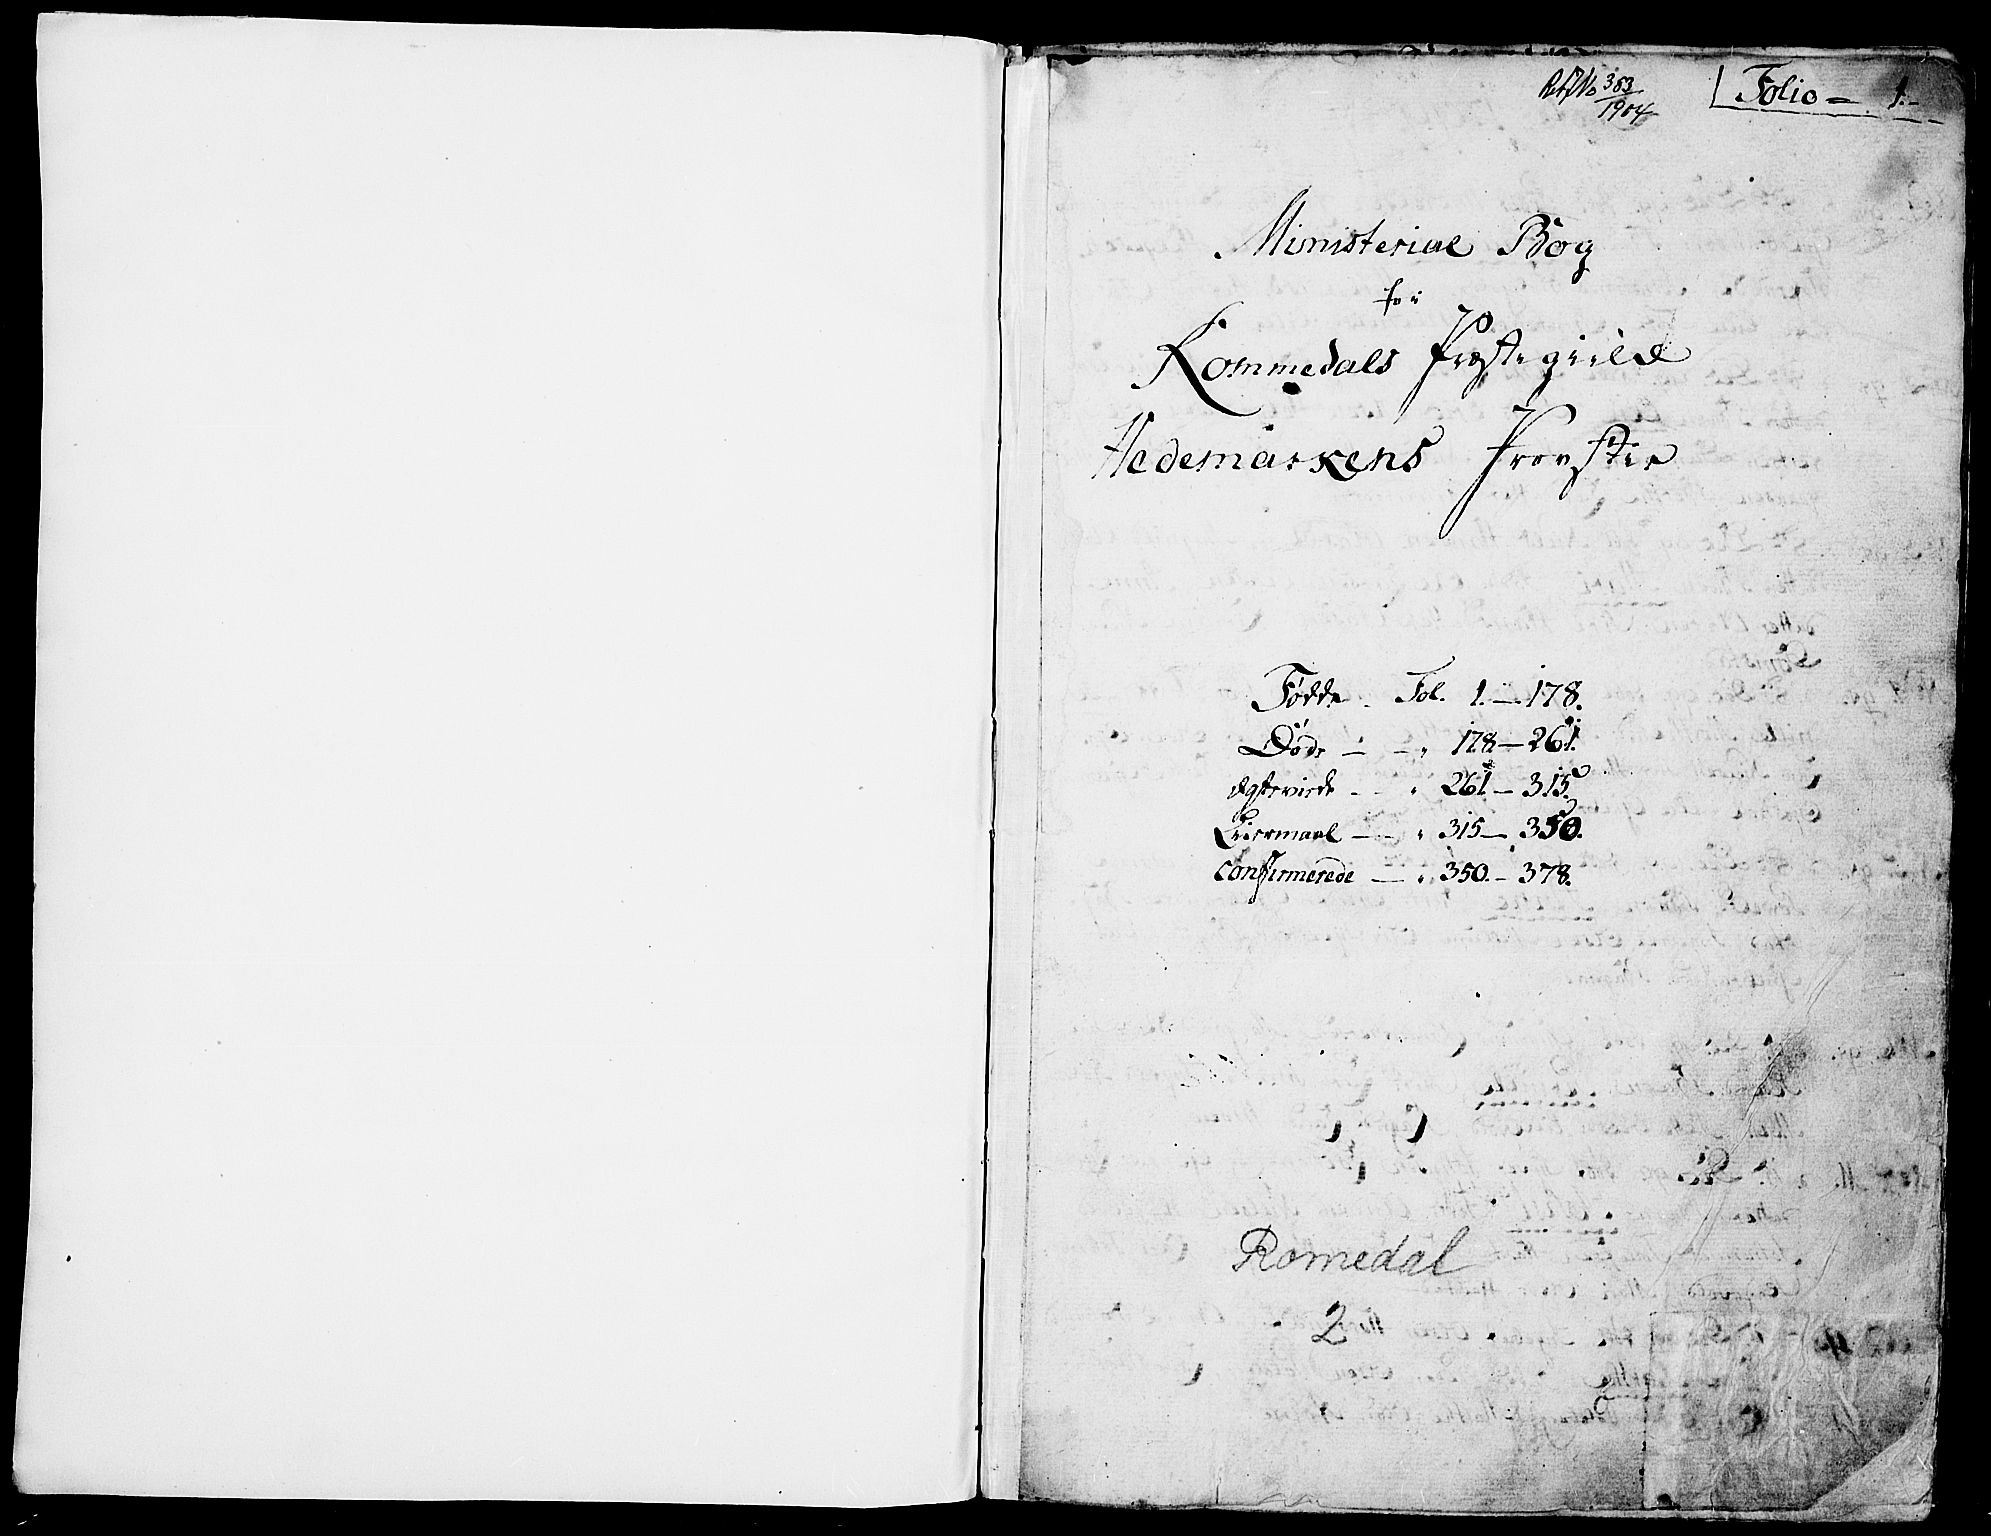 Folio = 1.-
383
1904
Ministerial Bog
for
Rommedals Præstegield
Hedemarkens Provstie
Fødde. Fol. 1.—178.
Døde — — " 178—261.
Egteviede — — " 261—315.
Leiermaal — — " 315—350.
Confirmerede — " 350.—378.
Romedal
2